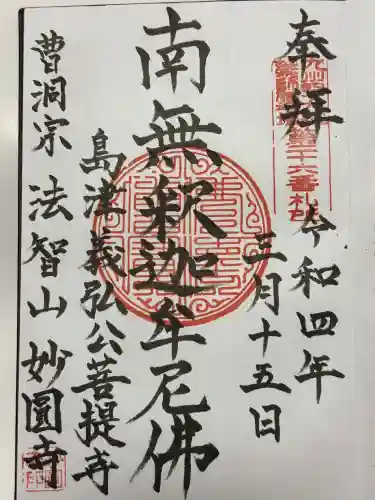 奉拝
令和四年
三月十五日
南無釈迦牟尼佛
島津義弘公菩提寺
曹洞宗 法智山 妙圓寺